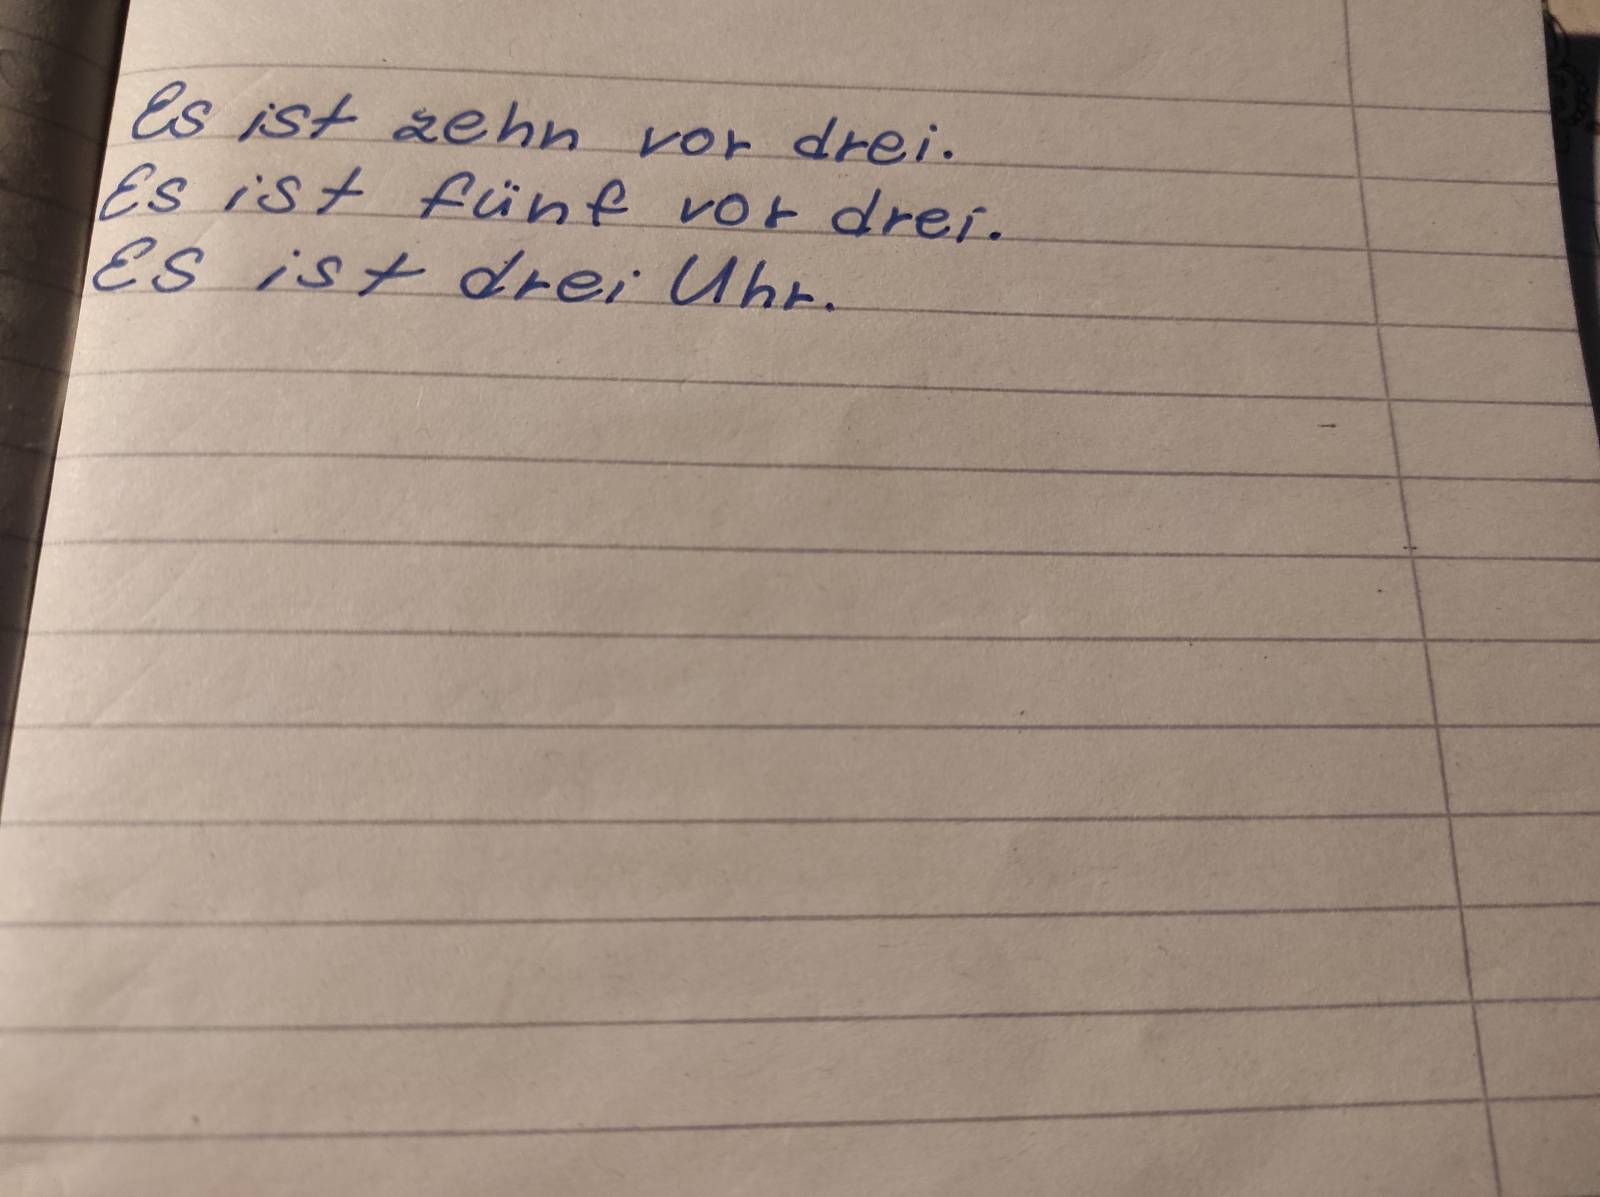 Es ist zehn vor drei.
Es ist fünf vor drei.
Es ist drei Uhr.